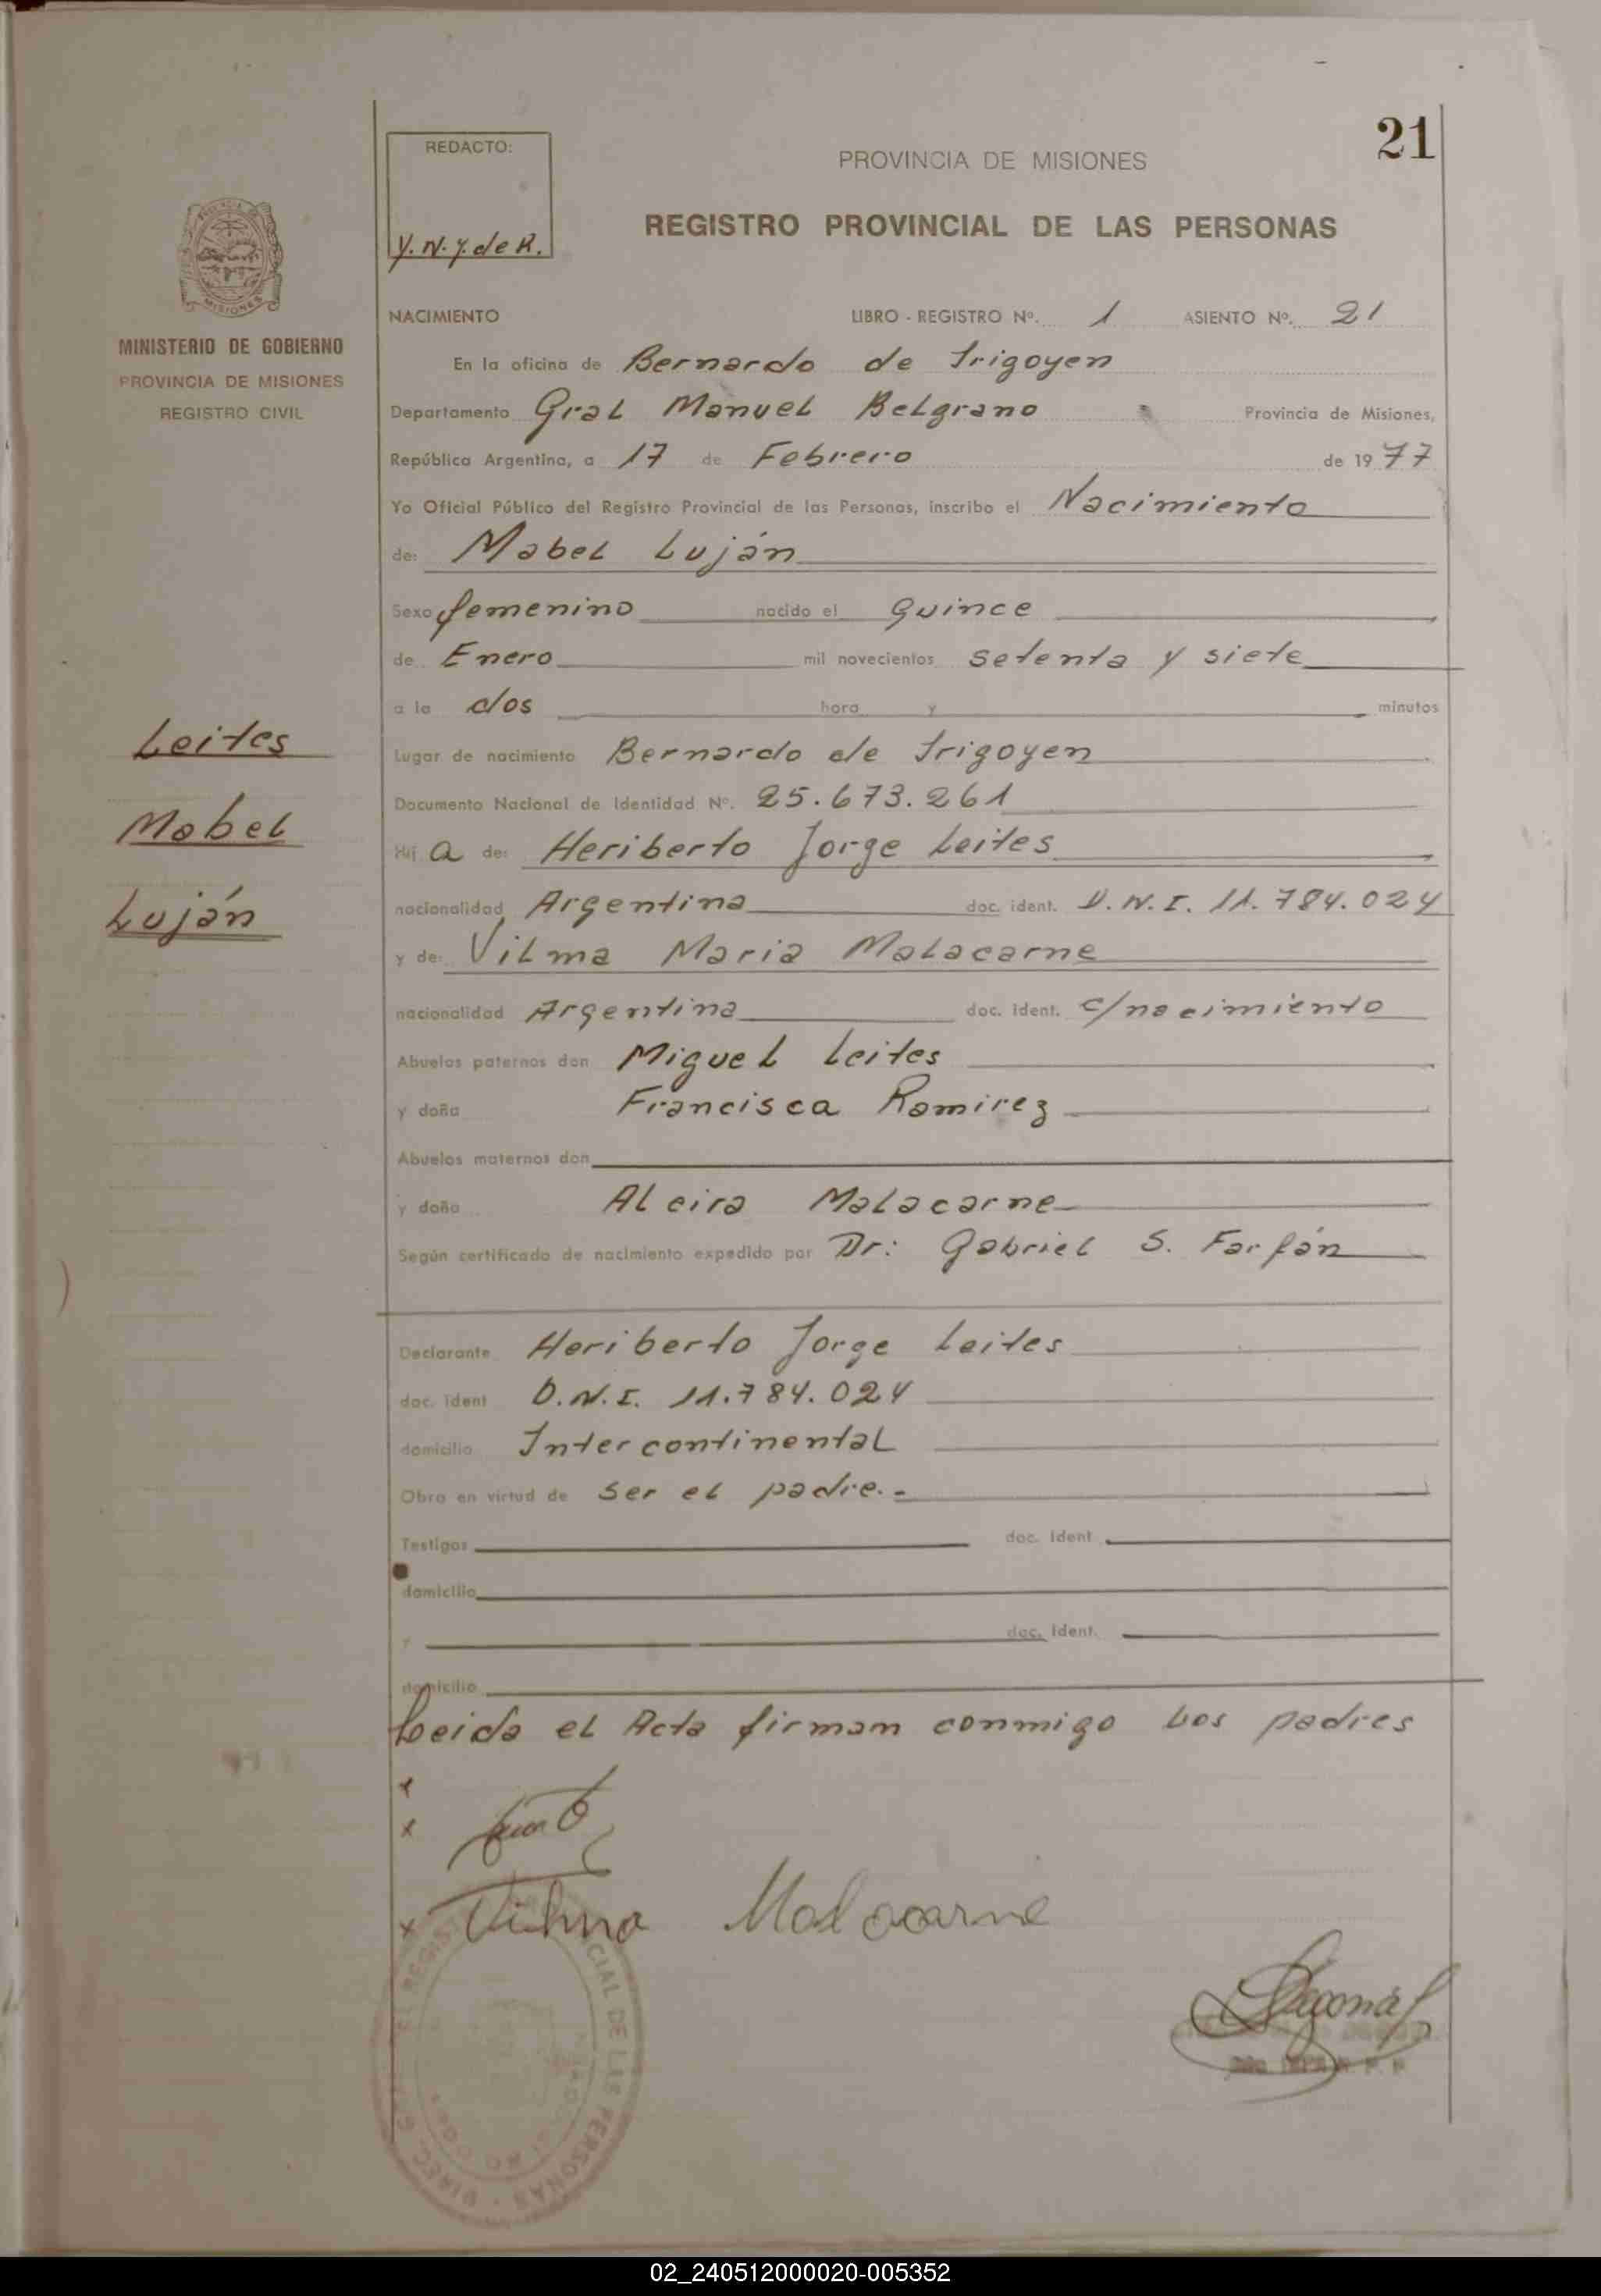 21
REDACTO:
Y.N.Y. de R.
PROVINCIA DE MISIONES
REGISTRO PROVINCIAL DE LAS PERSONAS
MISIONES
MINISTERIO DE GOBIERNO
PROVINCIA DE MISIONES
REGISTRO CIVIL
NACIMIENTO LIBRO - REGISTRO Nº. 1 ASIENTO Nº. 21
En la oficina de Bernardo de Irigoyen
Departamento Gral Manuel Belgrano Provincia de Misiones,
República Argentina, a 17 de Febrero de 1977
Yo Oficial Público del Registro Provincial de las Personas, inscribo el Nacimiento
de: Mabel Luján
Sexo femenino nacido el Quince
de Enero mil novecientos setenta y siete
a la dos hora y minutos
Leites
Mabel
Luján
Lugar de nacimiento Bernardo de Irigoyen
Documento Nacional de Identidad Nº. 25.673.261
Hij a de: Heriberto Jorge Leites
nacionalidad Argentina doc. ident. D.N.I. 11.784.024
y de: Vilma Maria Malacarne
nacionalidad Argentina doc. ident. c/nacimiento
Abuelos paternos don Miguel Leites
y doña Francisca Ramirez
Abuelos maternos don
y doña Alcira Malacarne
Según certificado de nacimiento expedido por Dr: Gabriel S. Farfán
Declarante Heriberto Jorge Leites
doc. ident D.N.I. 11.784.024
domicilio Intercontinental
Obra en virtud de ser el padre.-
Testigos doc. ident
domicilio
y doc. ident.
domicilio
Leida el Acta firman conmigo los padres
x
x
x Vilma Malacarne
REGISTRO PROVINCIAL DE LAS PERSONAS
02_240512000020-005352